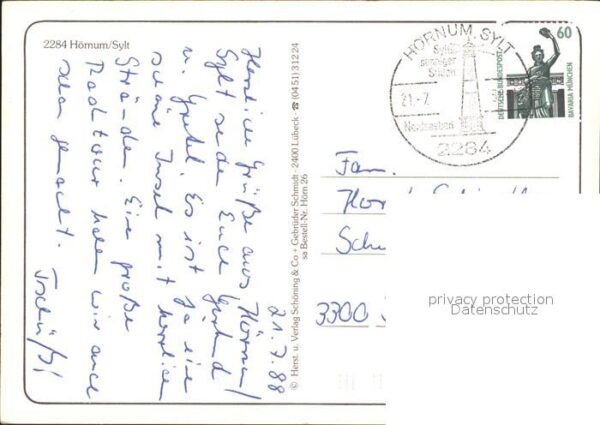 2284 Hörnum/Sylt
21.7.88
Herzliche Grüße aus Hörnum/
Sylt senden Euch Gerhard
u. Gretel. Es ist ja eine
schöne Insel mit herrlichen
Stränden. Eine große
Radtour haben wir auch
schon gemacht. Tschüß!
© Herst. u. Verlag Schöning & Co + Gebrüder Schmidt · 2400 Lübeck · ☎ (04 51) 3 12 24
sa Bestell-Nr. Hörn 26
HÖRNUM, SYLT
21.-7.
2284
60
DEUTSCHE BUNDESPOST
BAVARIA MÜNCHEN
Fam.
3300
privacy protection
Datenschutz